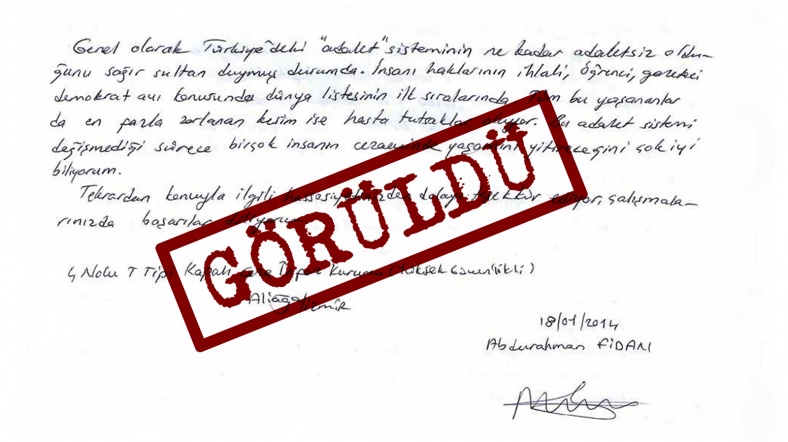 Genel olarak Türkiye'deki "adalet" sisteminin ne kadar adaletsiz oldu-
ğunu sağır sultan duymuş durumda. İnsanı haklarının ihlali, öğrenci, gazeteci
demokrat avı konusunda dünya listesinin ilk sıralarında. Tüm bu yaşananlar
da en fazla zorlanan kesim ise hasta tutsaklar oluyor. Bu adalet sistemi
değişmediği sürece birçok insanın cezaevinde yaşamını yitireceğini çok iyi
biliyorum.
Tekrardan konuyla ilgili hassasiyetinizden dolayı teşekkür ediyor, çalışmala-
rınızda başarılar diliyorum.
GÖRÜLDÜ
4 Nolu T Tipi Kapalı Ceza İnfaz Kurumu (Yüksek Güvenlikli)
Aliağa/İzmir
18/01/2014
Abdurahman FİDAN